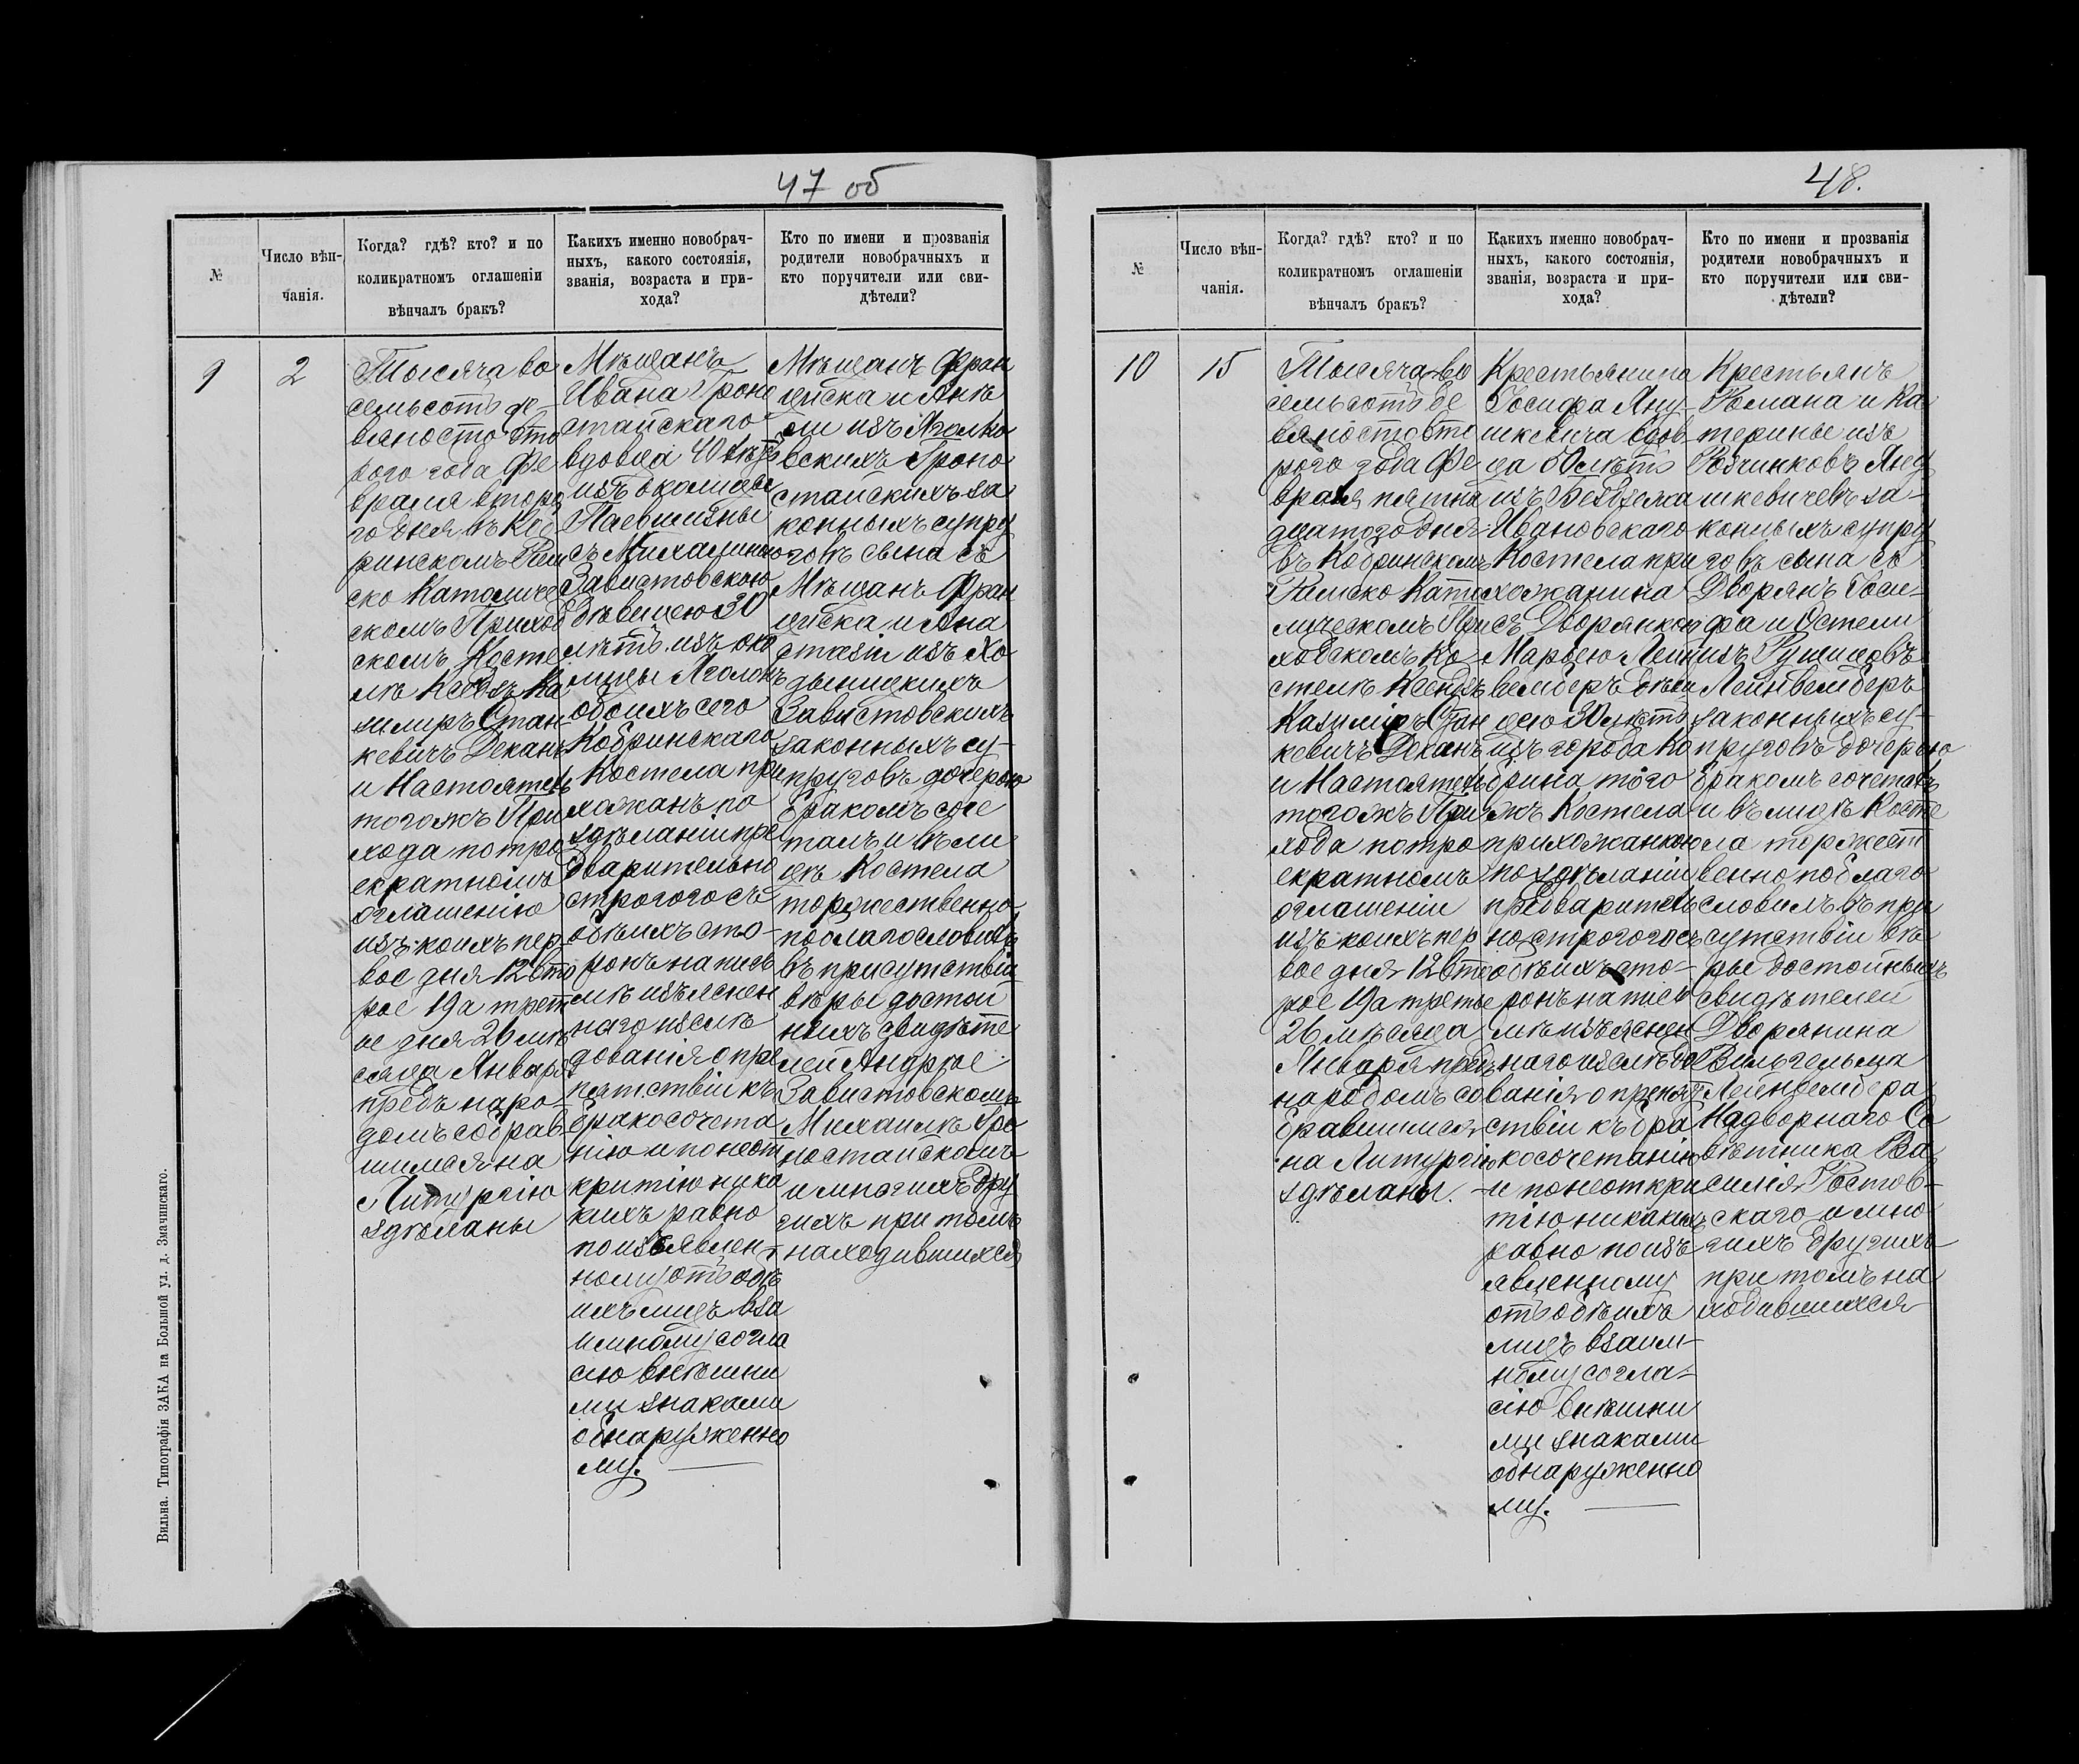 47 об
№
Число вѣн-
чанія.
Когда? гдѣ? кто? и по
коликратномъ оглашеніи
вѣнчалъ бракъ?
Какихъ именно новобрач-
ныхъ, какого состоянія,
званія, возраста и при-
хода?
Кто по имени и прозванія
родители новобрачныхъ и
кто поручители или сви-
дѣтели?
9
2
Тысяча во
семьсотъ де-
вяносто вто
рого года Фе
враля второ
го дня въ Коб
ринскомъ Рим
ско Католиче
скомъ Приход
скомъ Косте
лѣ Ксендзъ Ка
зимиръ Стан
кевичъ Деканъ
и Настоятель
тогожъ При
хода по тро
екратномъ
оглашенію
изъ коихъ пер
вое дня 12 вто
рое 19 а трет
ье дня 26 мѣ
сяца Января
предъ наро-
домъ собрав
шимся на
Литургію
здѣланы
Мѣщанъ
Ивана Гроно
стайскаго
вдовца 40 лѣтъ
изъ околицы
Паевщизны
съ Михалиною
Завистовскою
дѣвицею 30
лѣтъ изъ око
лицы Яголок
обоихъ сего
Кобринскаго
Костела при
хожанъ по
здѣланіи пре
дварительно
строгого съ
обѣихъ сто-
ронъ на пись
мѣ изъяснен
наго изслѣ
дованія о пре
пятствіи къ
бракосочета
нію и по неот
крытію ника
кихъ равно
по изъявлен-
ному отъ обѣ
ихъ лицъ вза
имному согла
сію внѣшни
ми знаками
обнаруженно
му.
Мѣщанъ Фран
циска и Анѣ
ли изъ
Гроно
стайскихъ за
конныхъ супру
говъ сына съ
Мѣщанъ Фран
циска и Ана
стазіи изъ Хо
дыницкихъ
Завистовскихъ
законныхъ су-
пруговъ дочерью
бракомъ соче
талъ и въ ли
цѣ Костела
торжественно
поблагословилъ
въ присутствіи
вѣры достой
ныхъ свидѣте
лей Андрѣе
Завистовскомъ
Михаилѣ Гро
ностайскомъ
и многихъ дру
гихъ при томъ
находившихся
Вильна. Типографія ЗАКА на Большой ул. д. Змачинскаго.
48.
№
Число вѣн-
чанія.
Когда? гдѣ? кто? и по
коликратномъ оглашеніи
вѣнчалъ бракъ?
Какихъ именно новобрач-
ныхъ, какого состоянія,
званія, возраста и при-
хода?
Кто по имени и прозванія
родители новобрачныхъ и
кто поручители или сви-
дѣтели?
10
15
Тысяча во
семьсотъ де
вяносто вто
рого года Фе
враля пятна
дцатого дня
въ Кобринскомъ
Римско Като
лическомъ При
ходскомъ Ко
стелѣ Ксендзъ
Казимиръ Стан
кевичъ Деканъ
и Настоятель
тогожъ При
хода по тро
екратномъ
оглашеніи
изъ коихъ пер
вое дня 12 вто
рое 19 а третье
26 мѣсяца
Января предъ
народомъ со
бравшимся
на Литургію
здѣланы.
Крестьянина
Іосифа Яну-
шкевича вдов
ца 50 лѣтъ
изъ
Ивановскаго
Костела при
хожанина
съ Дворянкою
Марьею Лейн
вембергъ дѣви
цею 30 лѣтъ
изъ города Ко
брина того
жъ Костела
прихожанкою
по здѣланіи
предваритель
но строгого съ
обѣихъ сто-
ронъ на пись
мѣ изъяснен
наго изслѣдо
ванія о препят
ствіи къ бра
косочетанію
и по неоткры
тію никакихъ
равно по изъ
явленному
отъ обѣихъ
лицъ взаим-
ному согла-
сію внѣшни
ми знаками
обнаруженно
му.
Крестьянъ
Романа и Ка
терины изъ
Яну
шкевичевъ за-
конныхъ супру
говъ сына съ
Дворянъ Іоси-
фа и
изъ
Лейнвембергъ
законныхъ су-
пруговъ дочерью
бракомъ сочеталъ
и въ лицѣ Косте
ла торжест
венно поблаго
словилъ въ при
сутствіи вѣ
ры достойныхъ
свидѣтелей
Дворянина
Вильгельма
Лейнвемберга
Надворнаго Со
вѣтника Ва
силія Ростов-
скаго и мно
гихъ другихъ
при томъ на
ходившихся